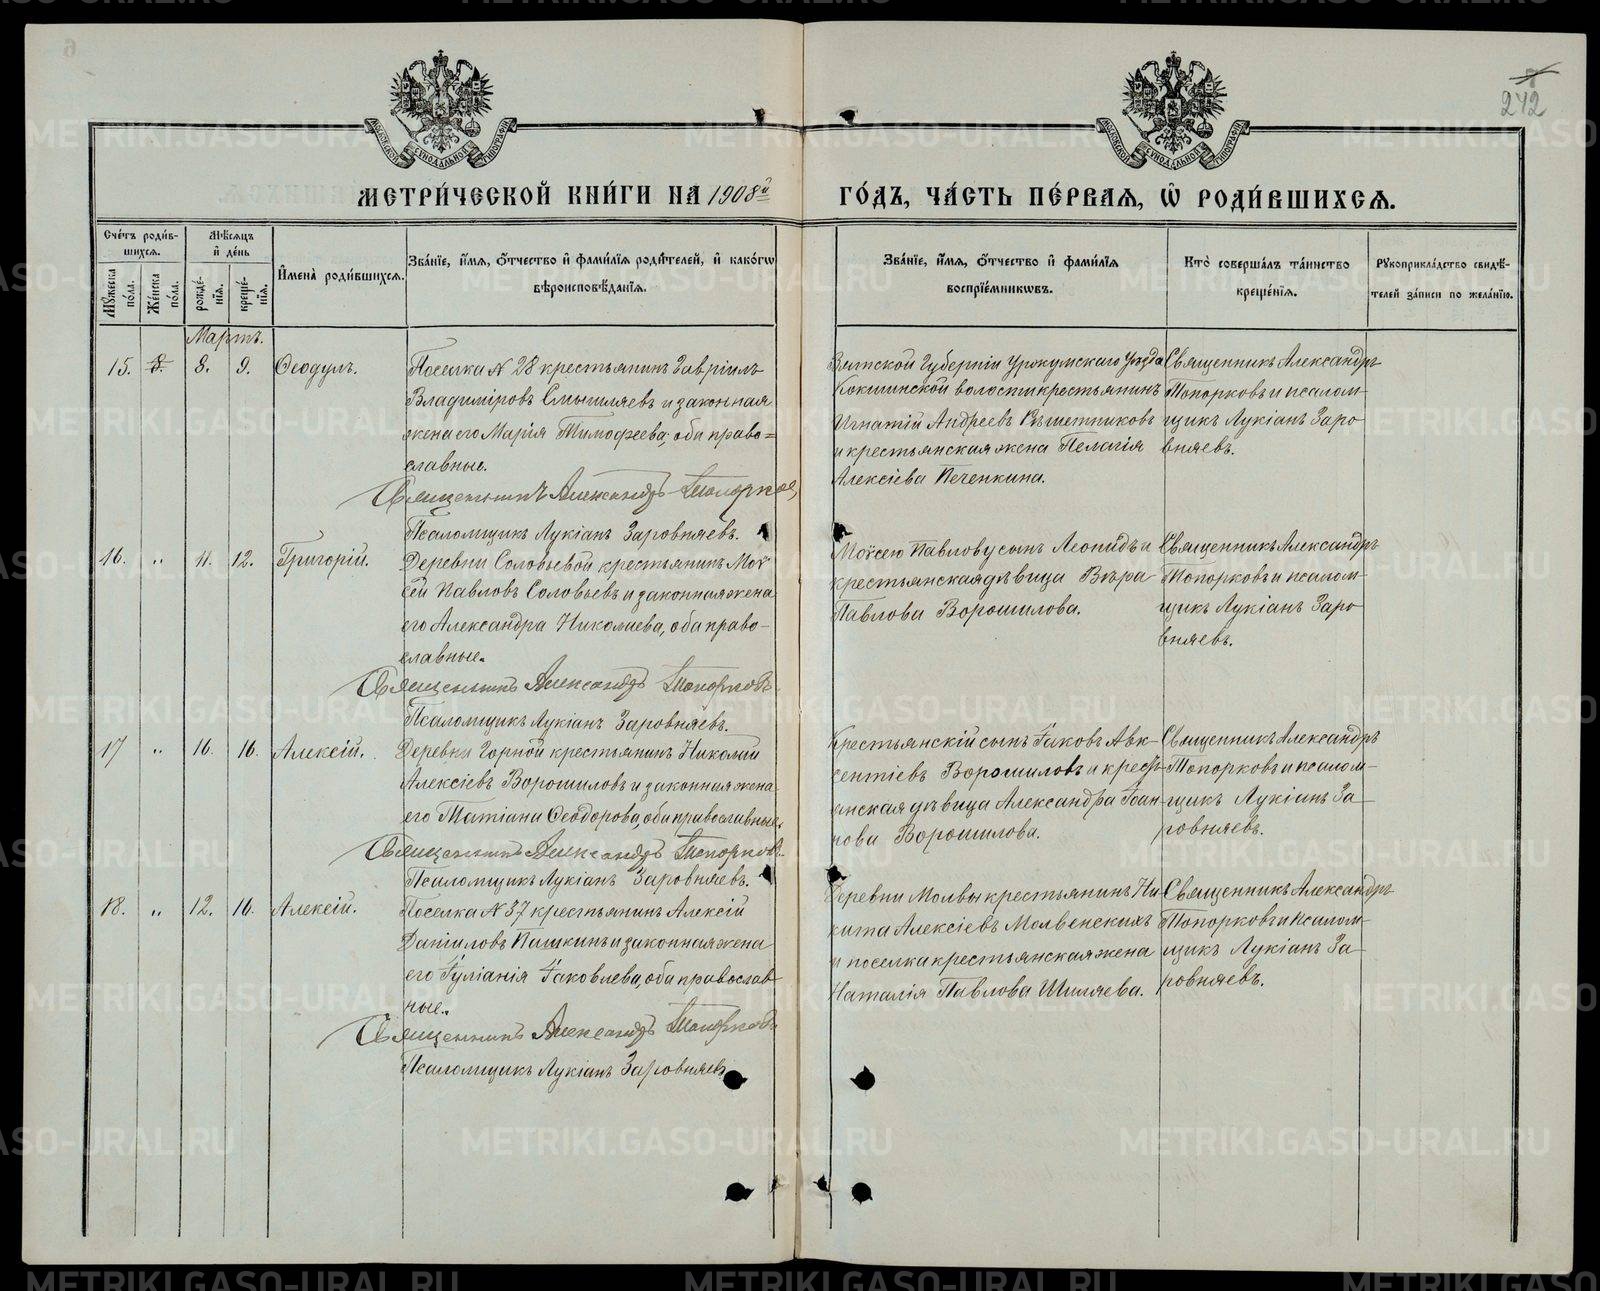 242
МЕТРИ́ЧЕСКОЙ КНИ́ГИ НА 1908й
ГО́ДЪ, ЧА́СТЬ ПЕ́РВАЯ, Ѡ҆ РОДИ́ВШИХСѦ.
Сче́тъ роди́в-
шихсѧ.
Мꙋ́жеска по́ла.
Же́нска по́ла.
Мѣ́сѧцъ
и҆ де́нь
рожде́-
нїѧ.
креще́-
нїѧ.
И҆мена̀ роди́вшихсѧ.
Зва́нїе, и҆́мѧ, ѻ҆́тчество и҆ фами́лїѧ роди́телей, и҆ како́гѡ
вѣроисповѣ́данїѧ.
Зва́нїе, и҆́мѧ, ѻ҆́тчество и҆ фами́лїѧ
воспрїе́мникѡвъ.
Кто̀ соверша́лъ та́инство
креще́нїѧ.
Рꙋкоприкла́дство свидѣ́-
телей за́писи по жела́нїю.
Мартъ.
15.
8.
9.
Ѳеодулъ.
Поселка № 28 крестьянинъ Гавріилъ
Владиміровъ Смышляевъ и законная
жена его Марія Тимофеева, оба право=
славные.
Священникъ Александръ Топорков
Псаломщикъ Лукіанъ Заровняевъ.
Вятской Губерніи Уржумскаго Уѣзда
Кокшинской волости крестьянинъ
Игнатій Андреевъ Рѣшетниковъ
и крестьянская жена Пелагія
Алексіева Печенкина.
Священникъ Александръ
Топорковъ и псалом-
щикъ Лукіанъ Заро
вняевъ.
16.
"
11.
12.
Григорій.
Деревни Соловьевой крестьянинъ Моѵ
сей Павловъ Соловьевъ и законная жена
его Александра Николаева, оба право-
славные.
Священникъ Александръ Топорковъ
Псаломщикъ Лукіанъ Заровняевъ.
Моѵсею Павлову сынъ Леонидъ и
крестьянская дѣвица Вѣра
Павлова Ворошилова.
Священникъ Александръ
Топорковъ и псалом-
щикъ Лукіанъ Заро
вняевъ.
17
"
16.
16.
Алексій.
Деревни Горной крестьянинъ Николай
Алексіевъ Ворошиловъ и законная жена
его Татіана Ѳеодорова, оба православные.
Священникъ Александръ Топорков
Псаломщикъ Лукіанъ Заровняевъ.
Крестьянскій сынъ Іаковъ Авк-
сентіевъ Ворошиловъ и кресть-
янская дѣвица Александра Іоан-
нова Ворошилова.
Священникъ Александръ
Топорковъ и псалом-
щикъ Лукіанъ За
ровняевъ.
18.
"
12.
16.
Алексій.
Поселка № 37 крестьянинъ Алексій
Даніиловъ Пашкинъ и законная жена
его Іуліанія Іаковлева, оба православ-
ные.
Священникъ Александръ Топорковъ
Псаломщикъ Лукіанъ Заровняевъ
Деревни Молвы крестьянинъ Ни-
кита Алексіевъ Молвенскихъ
и поселка крестьянская жена
Наталія Павлова Шиляева.
Священникъ Александръ
Топорковъ и псалом-
щикъ Лукіанъ За
ровняевъ.
METRIKI.GASO-URAL.RU